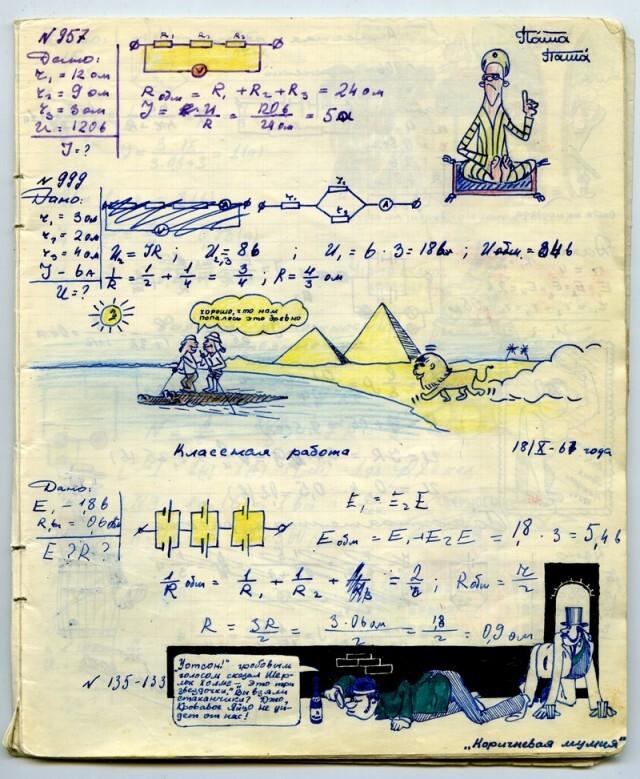 N 957
Дано:
r₁ = 12 ом
r₂ = 9 ом
r₃ = 3 ом
U = 120 в
I = ?
R₁ R₂ R₃
V
R общ = R₁ + R₂ + R₃ = 24 ом
I = U/R = 120 в/24 ом = 5 а
Паша
Паша
N 999
Дано:
r₁ = 3 ом
r₂ = 2 ом
r₃ = 4 ом
I - 6 а
U = ?
A
V
r₁ r₂ A
U₂ = IR ; U₂,₃ = 8 в ; U₁ = 6 · 3 = 18 в ; U общ. = 34 в
1/R = 1/2 + 1/4 = 3/4 ; R = 4/3 ом
хорошо, что нам
попалось это древно
Классная работа 18/X-67 года
Дано:
E₁ - 1,8 в
R₁ = 0,6 ом
E ? R ?
E₁ = E₂ E
E общ = E₁ + E₂ E = 1,8 · 3 = 5,4 в
1/R общ = 1/R₁ + 1/R₂ + = 2/r ; R общ = r/2
R = 3R/2 = 3 · 0,6 ом/2 = 1,8/2 = 0,9 ом
N 135-133
"Уотсон!" гробовым
голосом сказал Шер-
лок Холмс - Это три
звездочки. "Вы взяли
стаканчики? Ото
Кровавое Яйцо не уй-
дет от нас!
"Коричневая мумия"